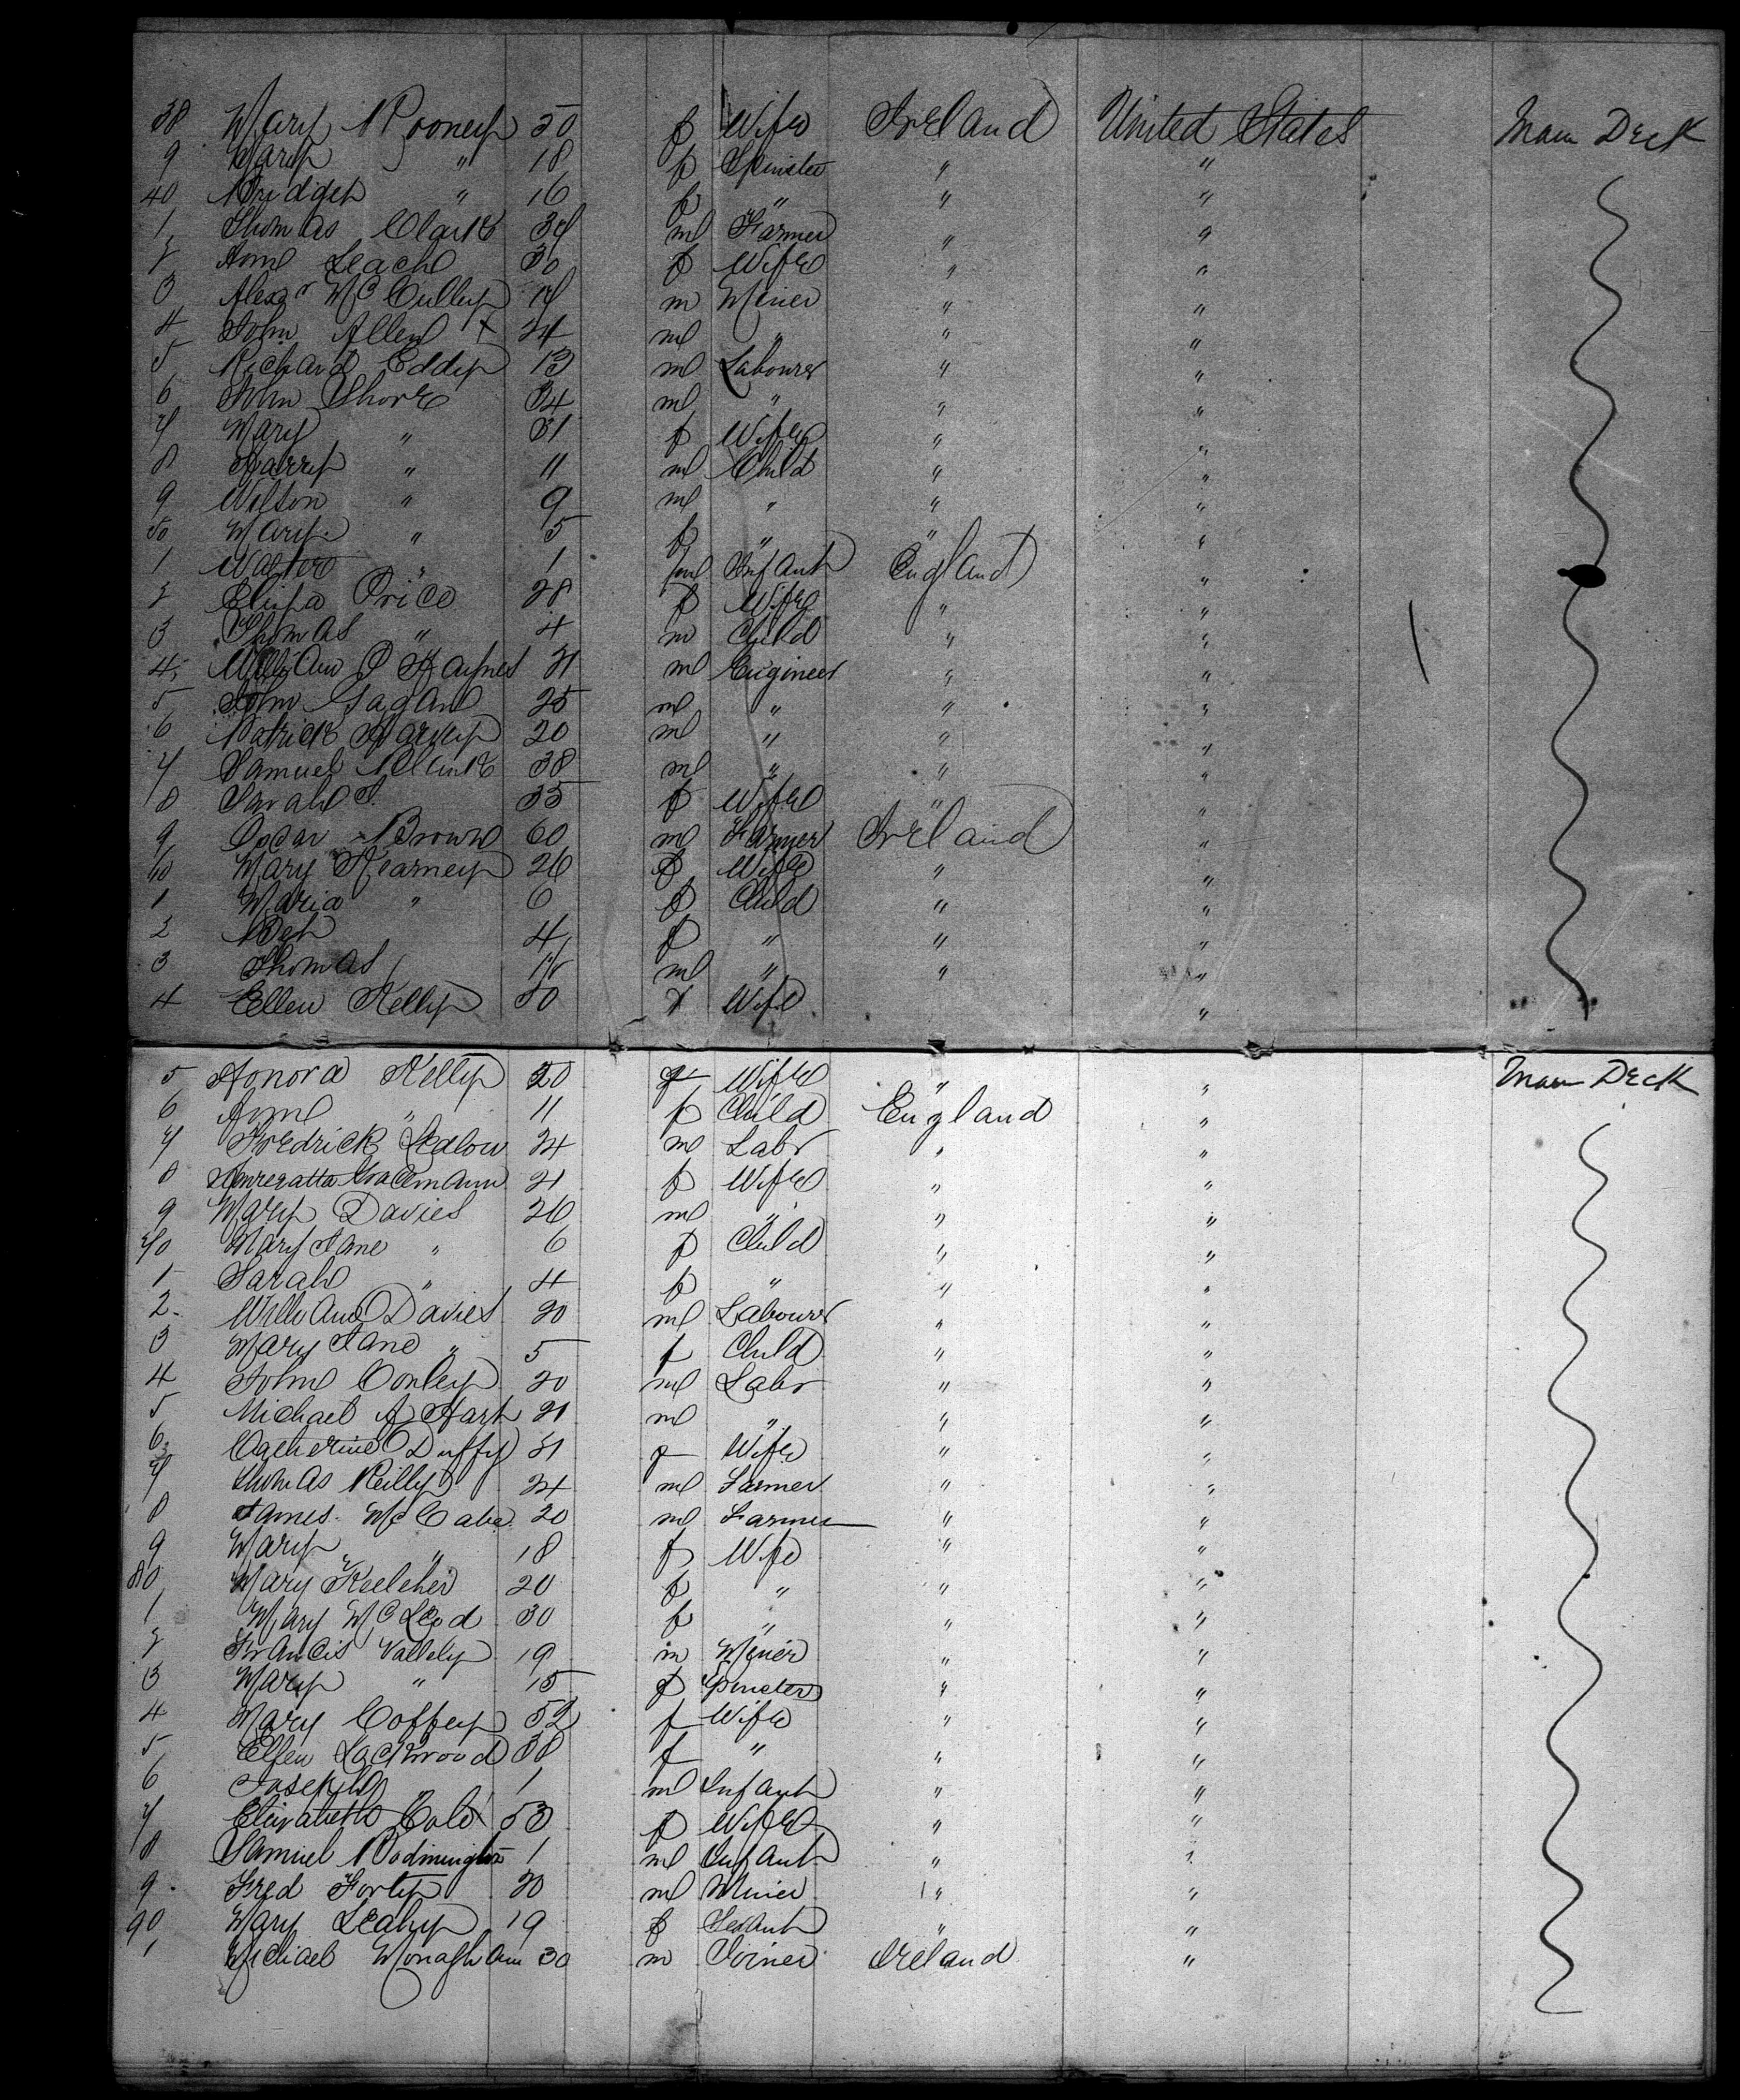 38 Mary Rooney 50 f Wife Ireland United States Main Deck
9 Mary " 18 f Spinster " "
40 Bridget " 16 f " " "
1 Thomas Clark 34 m Farmer " "
2 Ann Leach 30 f Wife " "
3 Alexr McCulley 19 m Miner " "
4 John Allen + 24 m " " "
5 Richard Eddy 13 m Labourer " "
6 John Shore 34 m " " "
7 Mary " 31 f Wife " "
8 Harry " 11 m Child " "
9 Wilson " 9 m " " "
50 Mary " 5 f " " "
1 Walter " 1 m Infant England "
2 Eliza Price 28 f Wife " "
3 Thomas " 4 m Child " "
4 William O Haynes 21 m Engineer " "
5 John Gagan 25 m " " "
6 Patrick Harvey 20 m " " "
7 Samuel 38 m " " "
8 Sarah 35 f Wife " "
9 Oscar Brown 60 m Farmer Ireland "
60 Mary Kearney 26 f Wife " "
1 Maria " 6 f Child " "
2 4 f " " "
3 Thomas m " " "
4 Ellen Kelly 50 f Wife "
5 Honora Kelly 20 f Wife " " Main Deck
6 Ann " 11 f Child England "
7 Fredrick Ledlow 24 m Labr " "
8 21 f Wife " "
9 Mary Davies 26 m " " "
70 Mary Jane " 6 f Child " "
1 Sarah " 4 f " " "
2 William Davies 20 m Labourer " "
3 Mary Jane " 5 f Child " "
4 John Conley 20 m Labr " "
5 Michael A Hart 21 m " " "
6 Catherine Duffy 51 f Wife " "
7 Thomas Reilly 24 m Farmer " "
8 James McCabe 20 m Farmer " "
9 Mary " 18 f Wife " "
80 Mary Keeleher 20 f " " "
1 Mary McLeod 30 f " " "
2 Francis Vallely 19 m Miner " "
3 Mary " 15 f Spinster " "
4 Mary Coffey 52 f Wife " "
5 Ellen Lackwood 38 f " " "
6 Joseph 1 m Infant " "
7 Elizabeth Cole 53 f Wife " "
8 Samuel Bodmington 1 m Infant " "
9 Fred Forty 20 m Miner " "
90 Mary Leahy 19 f Servant " "
1 Michael Monaghan 30 m Joiner Ireland "